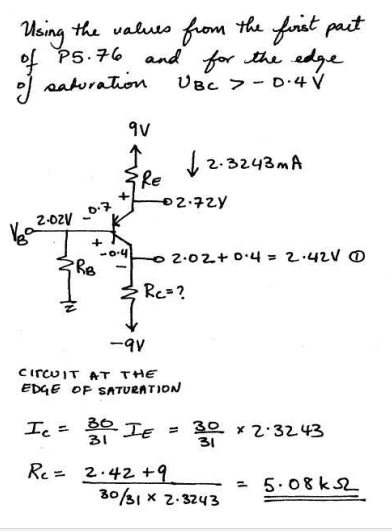 Using the values from the first part
of P5.76 and for the edge
of saturation UBC > -0.4V
9V
2.3243mA
RE
+
2.72V
-0.7
2.02V
VB
+
-0.4
-
2.02+0.4 = 2.42V ①
RB
RC=?
-9V
CIRCUIT AT THE
EDGE OF SATURATION
IC = 30/31 IE = 30/31 × 2.3243
RC = 2.42+9 / 30/31 × 2.3243 = 5.08kΩ